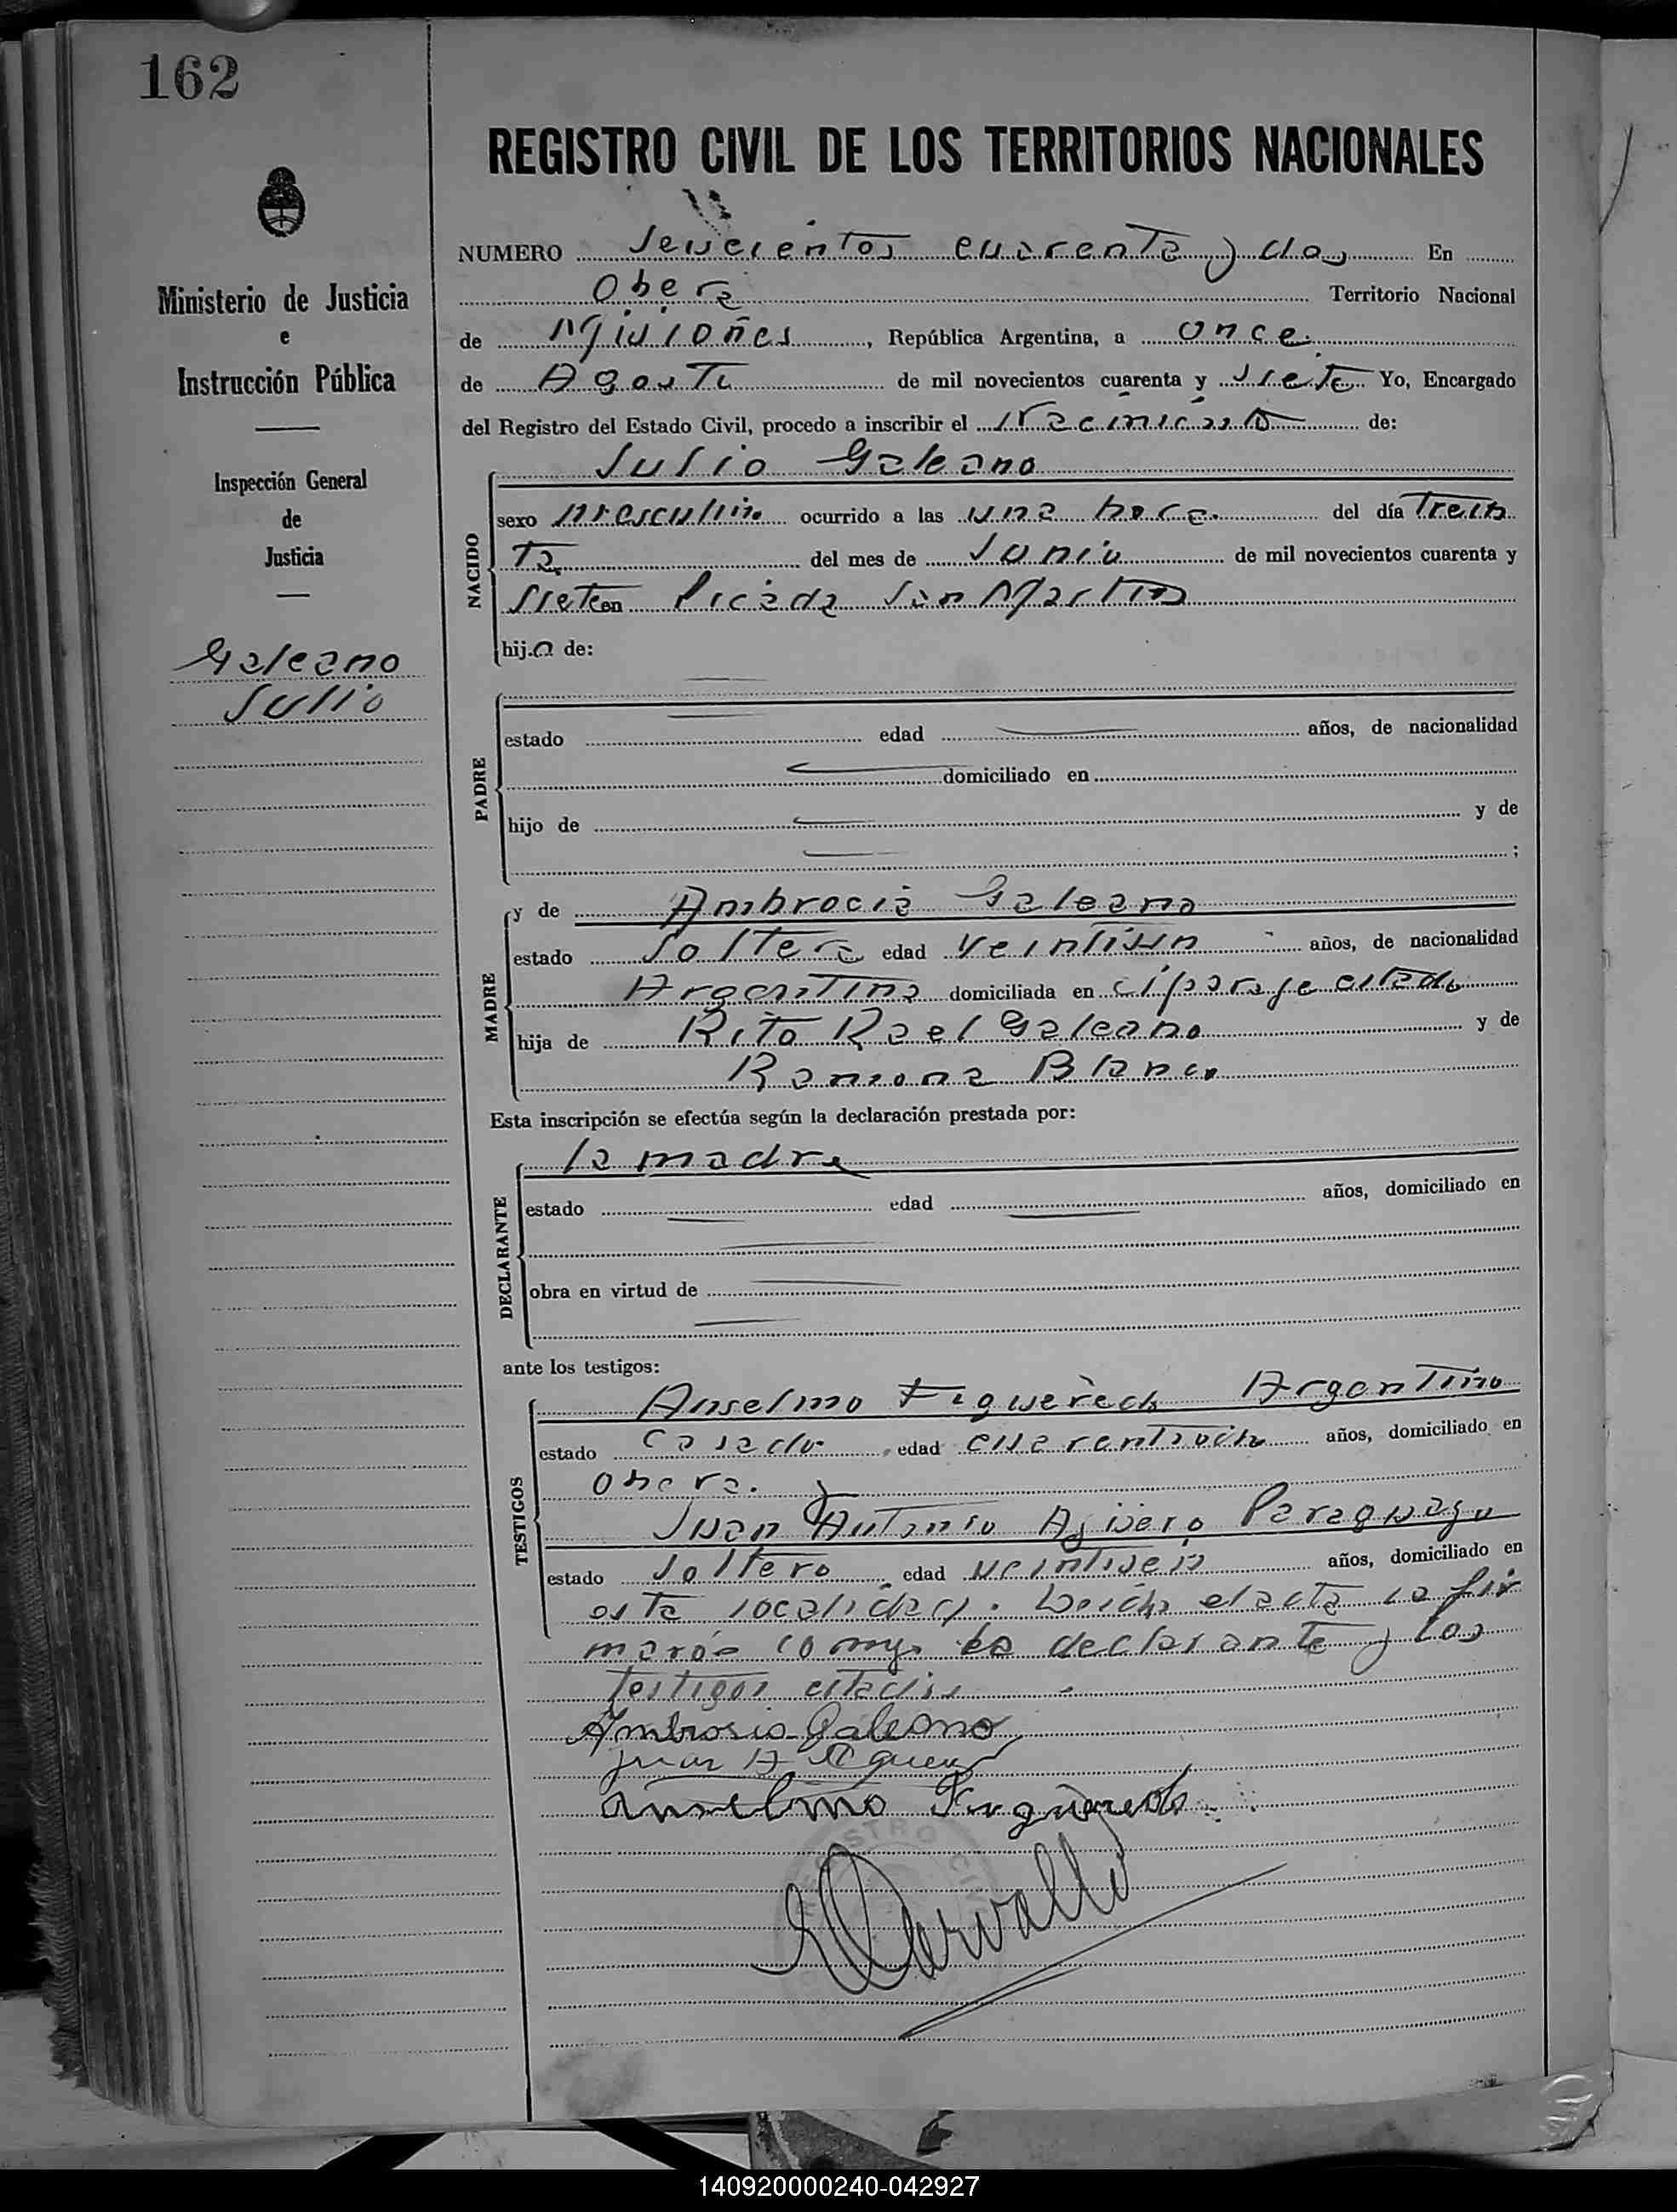 162
REGISTRO CIVIL DE LOS TERRITORIOS NACIONALES
Ministerio de Justicia
e
Instrucción Pública
Inspección General
de
Justicia
Galeano
Julio
NUMERO Seiscientos cuarenta y dos En
Oberá Territorio Nacional
de Misiones, República Argentina, a once
de Agosto de mil novecientos cuarenta y siete Yo, Encargado
del Registro del Estado Civil, procedo a inscribir el Nacimiento de:
NACIDO
Julio Galeano
sexo masculino ocurrido a las una hora del día Trein
ta del mes de Junio de mil novecientos cuarenta y
siete en Picada San Martin
hijo de:
PADRE
estado edad años, de nacionalidad
domiciliado en
hijo de y de
;
MADRE
y de Ambrocia Galeano
estado Soltera edad Veintiun años, de nacionalidad
Argentina domiciliada en el paraje citado
hija de Rito Rael Galeano y de
Ramona Blanco
Esta inscripción se efectúa según la declaración prestada por:
DECLARANTE
la madre
estado edad años, domiciliado en
obra en virtud de
ante los testigos:
TESTIGOS
Anselmo Figueredo Argentino
estado Casado edad cuarentiocho años, domiciliado en
Oberá. y
Juan Antonio Agüero Paraguayo
estado Soltero edad veintiseis años, domiciliado en
esta localidad. Leida el acta la fir
maron conmigo la declarante y los
testigos citados
Ambrosia Galeano
Juan A Aguero
Anselmo Figueredo
Carvallo
140920000240-042927